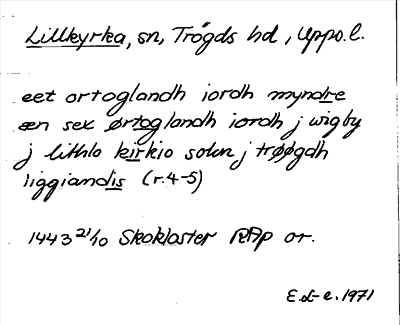 Lillkyrka, sn, Trögds hd, Upps.l.
eet ortoglandh iordh myndre
æn sex ørtoglandh iordh j wigby
j lithlo kirkio sokn j trøøgdh
liggiandis (r.4-5)
1443 21/10 Skokloster RAp or.
E.d-e. 1971